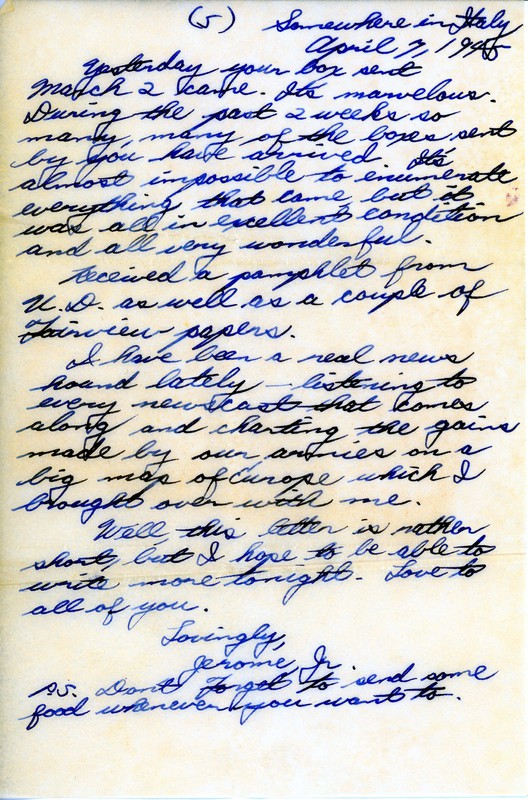 (5) Somewhere in Italy
April 7, 1945
Yesterday your box sent
March 2 came. It's marvelous.
During the past 2 weeks so
many, many of the boxes sent
by you have arrived. It's
almost impossible to enumerate
everything that came, but it
was all in excellent condition
and all very wonderful.
Received a pamphlet from
U.D. as well as a couple of
Fairview papers.
I have been a real news
hound lately - listening to
every newscast that comes
along and charting the gains
made by our armies on a
big map of Europe which I
brought over with me.
Well, this letter is rather
short, but I hope to be able to
write more tonight. Love to
all of you.
Lovingly,
Jerome, Jr.
P.S. Don't forget to send some
food whenever you want to.